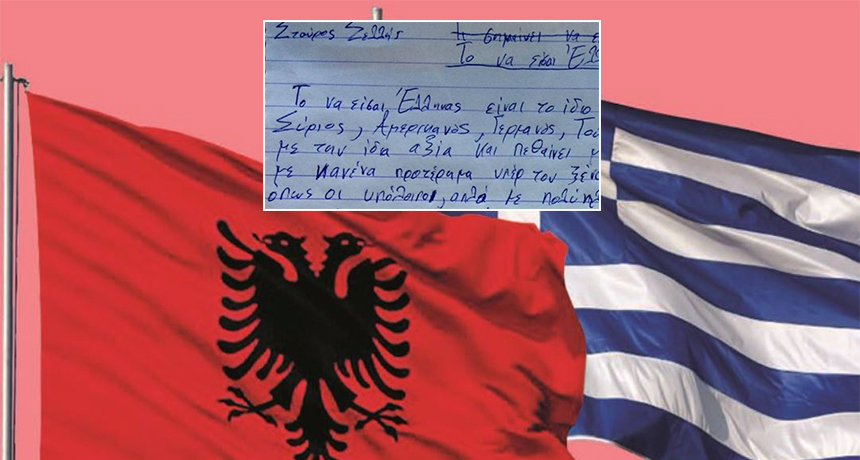 Σταύρος Σελλής Τι σημαίνει να
Το να είσαι Έλλ
Το να είσαι Έλληνας είναι το ίδιο
Σύριος, Αμερικανός, Γερμανός, Του
με την ίδια αξία και πεθαίνει
με κανένα προτέρημα υπέρ του ξένο
όπως οι υπόλοιποι, απλά με πολύ